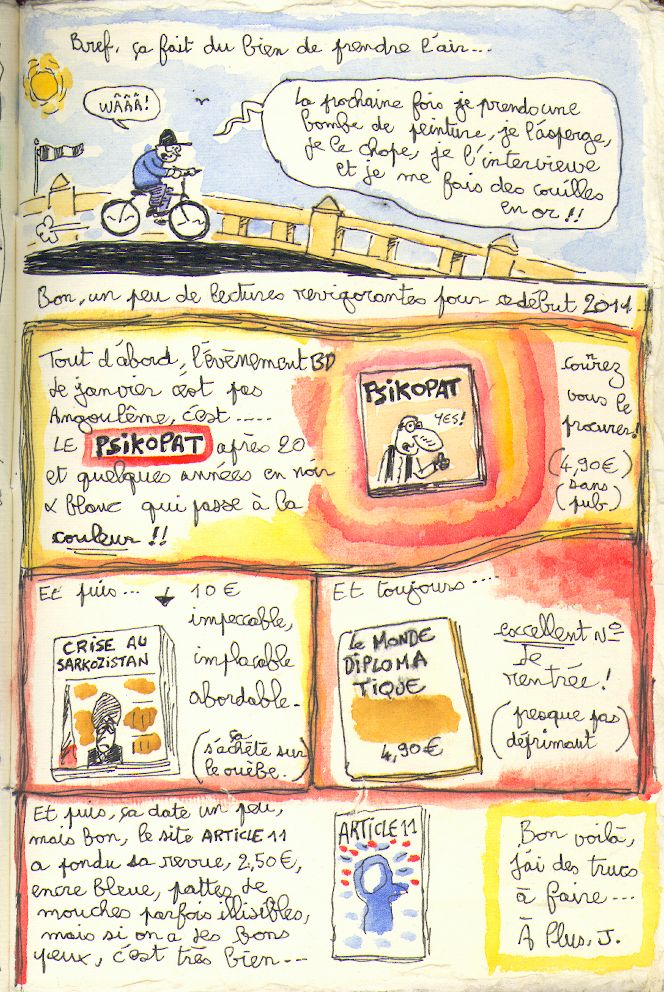 Bref, ça fait du bien de prendre l'air...
WÂÂÂ!
La prochaine fois je prends une
bombe de peinture, je l'asperge,
je le chope, je l'interviewe
et je me fais des couilles
en or!!
Bon, un peu de lectures revigorantes pour ce début 2011...
Tout d'abord, l'évènement BD
de janvier c'est pas
Angoulême, c'est.....
LE PSIKOPAT après 20
et quelques années en noir
& blanc qui passe à la
couleur!!
PSIKOPAT
YES!
courez
vous le
procurer!
(4,90€)
(sans
pub)
Et puis...
10€
impeccable,
implacable
abordable.
(ça
s'achète sur
le ouèbe.)
CRISE AU
SARKOZISTAN
Et toujours....
LE MONDE
DIPLOMA
TIQUE
4,90€
excellent N°
de
rentrée!
(presque pas
déprimant)
Et puis, ça date un peu,
mais bon, le site ARTICLE 11
a pondu sa revue, 2,50€,
encre bleue, pattes de
mouches parfois illisibles,
mais si on a des bons
yeux, c'est très bien...
ARTICLE 11
Bon voilà,
j'ai des trucs
à faire...
À Plus, J.